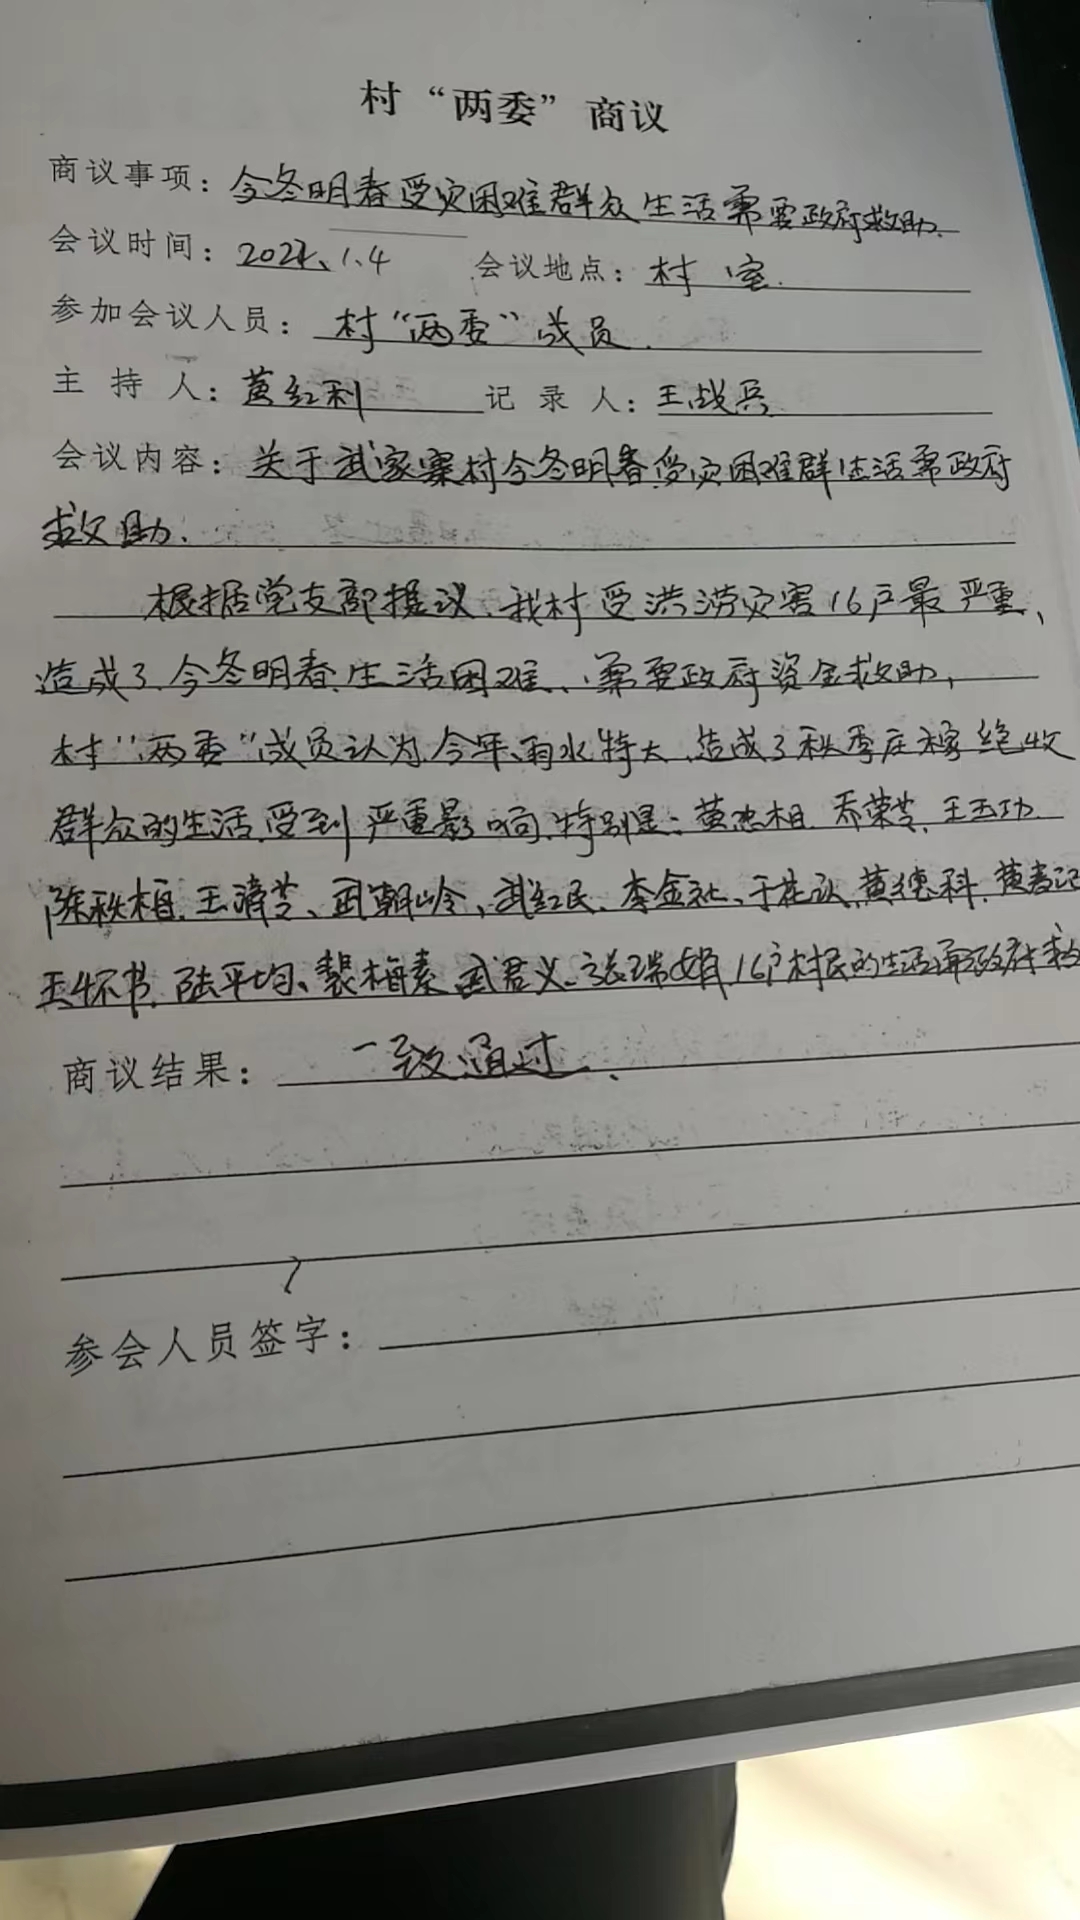 村“两委”商议
商议事项：今冬明春受灾困难群众生活需要政府救助.
会议时间：202、1.4 会议地点：村室.
参加会议人员：村“两委”成员.
主持人：黄红利 记录人：王战兵
会议内容：关于武家寨村今冬明春受灾困难群生活需政府
救助.
根据党支部提议、我村受洪涝灾害16户最严重、
造成了今冬明春生活困难、需要政府资金救助,
村“两委”成员认为今年雨水特大、造成了秋季庄稼绝收
群众的生活受到严重影响、特别是：黄相、乔荣芝、王玉功
陈秋相、王清芝、武朝岭、武红民、李金社、于花认、黄德科、黄
王怀书、陆平均、裴梅素、武君义、张瑞娟、16户村民的生活需政府救
商议结果：一致通过.
参会人员签字：